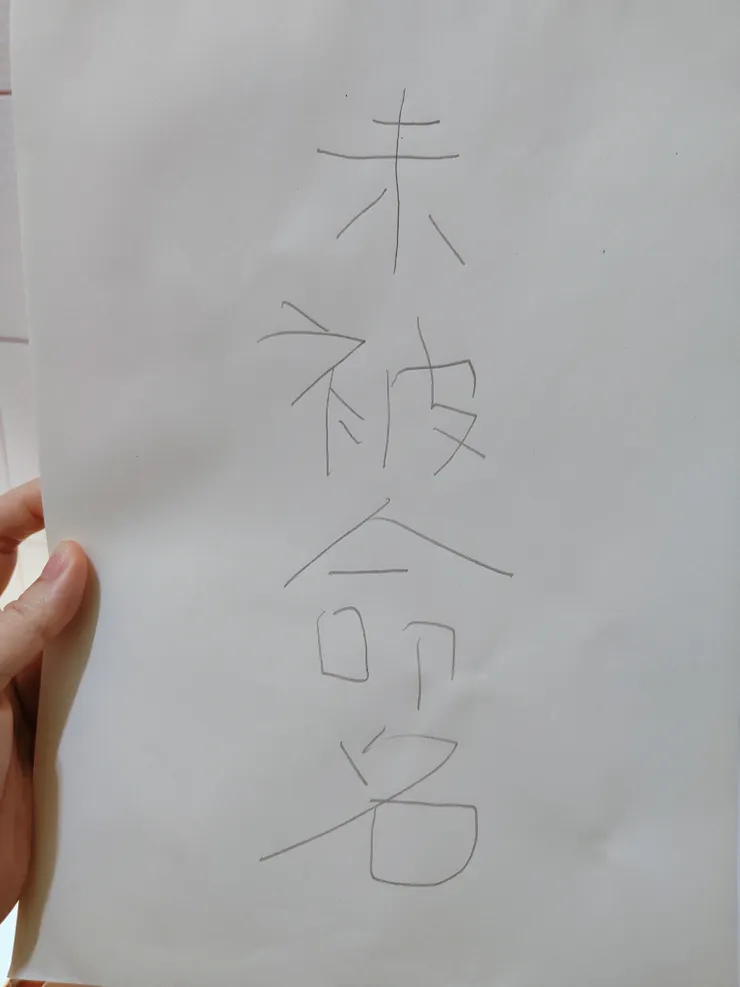 未被命名